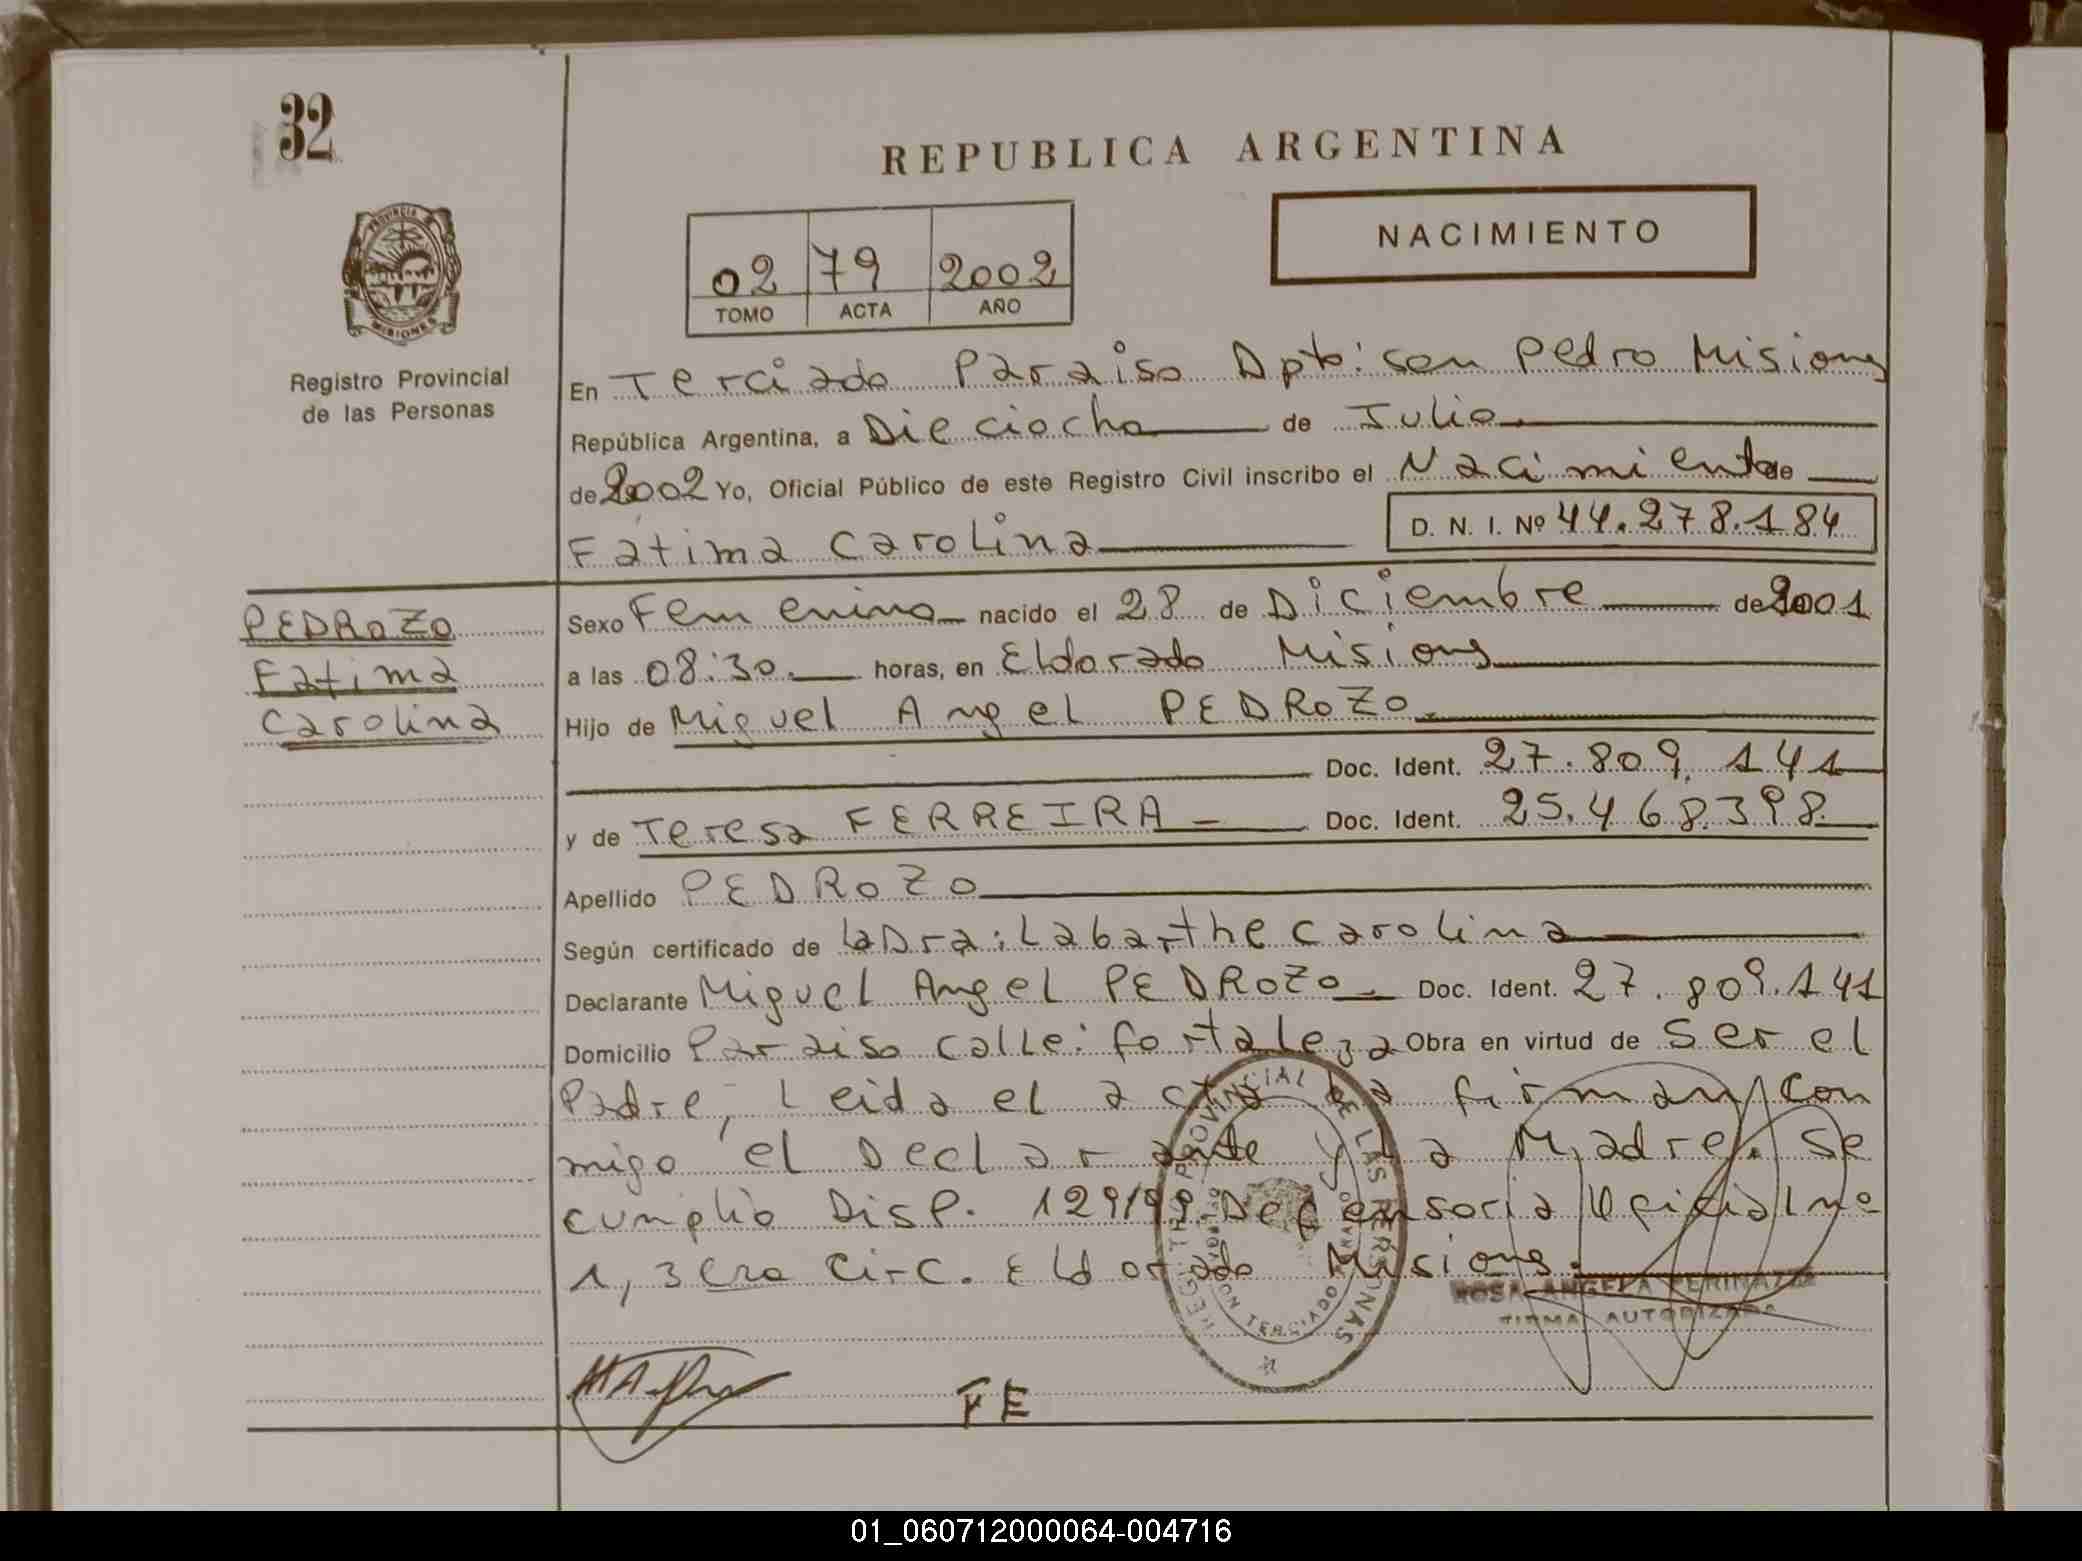 32
REPUBLICA ARGENTINA
PROVINCIA DE
MISIONES
NACIMIENTO
02 79 2002
TOMO ACTA AÑO
Registro Provincial
de las Personas
En Terciado Paraiso Dpto: san Pedro Misiones
República Argentina, a Dieciocho de Julio.
de 2002 Yo, Oficial Público de este Registro Civil inscribo el Nacimiento de
D. N. I. Nº 44.278.184
Fatima Carolina
PEDROZO
Fatima
Carolina
Sexo Femenino nacido el 28 de Diciembre de 2001
a las 08:30. horas, en Eldorado Misiones
Hijo de Miguel Angel PEDROZO.
Doc. Ident. 27.809.141
y de Teresa FERREIRA Doc. Ident. 25.468.398.
Apellido PEDROZO
Según certificado de la Dra: Labarthe Carolina
Declarante Miguel Angel PEDROZO. Doc. Ident. 27.809.141
Domicilio Paraiso calle: fortaleza Obra en virtud de ser el
Padre, Leida el acta la firman con
migo el Declarante y la Madre. se
cumplio Disp. 129/99. Defensoria Oficial nº
1, 3era Circ. Eldorado Misiones.
REGISTRO PROVINCIAL DE LAS PERSONAS
TERCIADO
ROSA ANGELA
FIRMA AUTORIZADA
FE
01_060712000064-004716